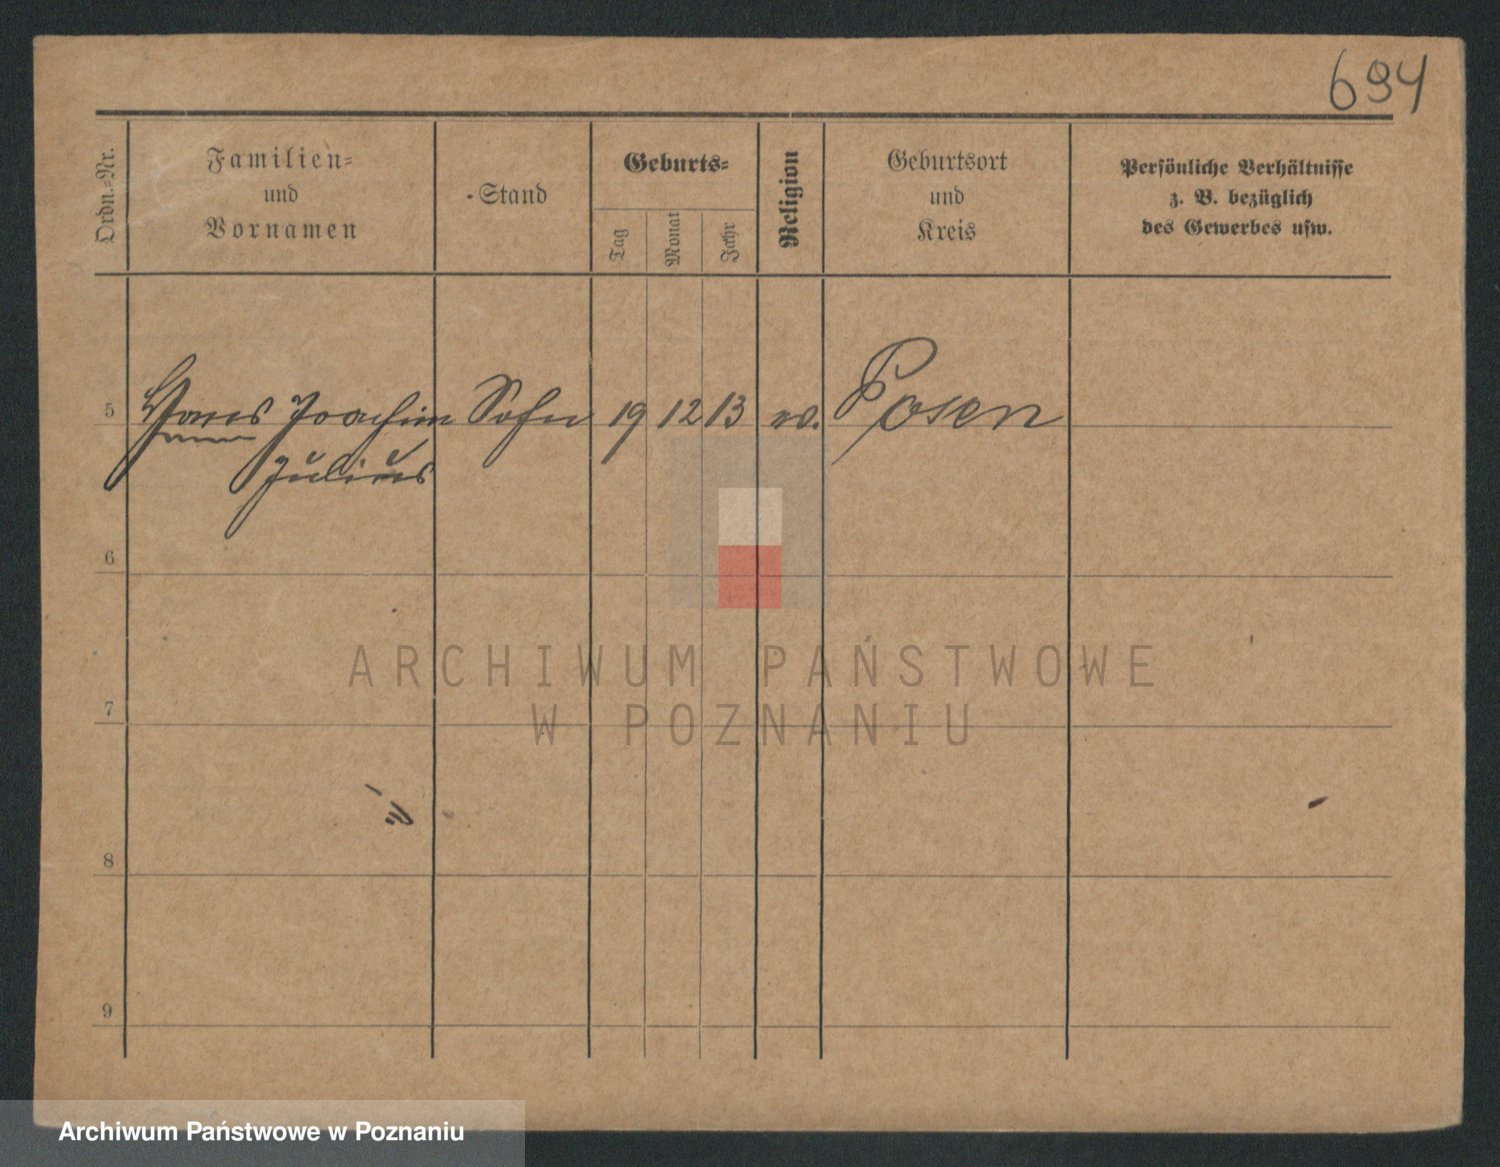 694
Ordn.-Nr.
Familien-
und
Vornamen
Stand
Geburts-
Tag
Monat
Jahr
Religion
Geburtsort
und
Kreis
Persönliche Verhältnisse
z. B. bezüglich
des Gewerbes usw.
5 Hans Joachim Sohn 19 12 13 Posen
Julius
6
ARCHIWUM PAŃSTWOWE
W POZNANIU
7
8
9
Archiwum Państwowe w Poznaniu